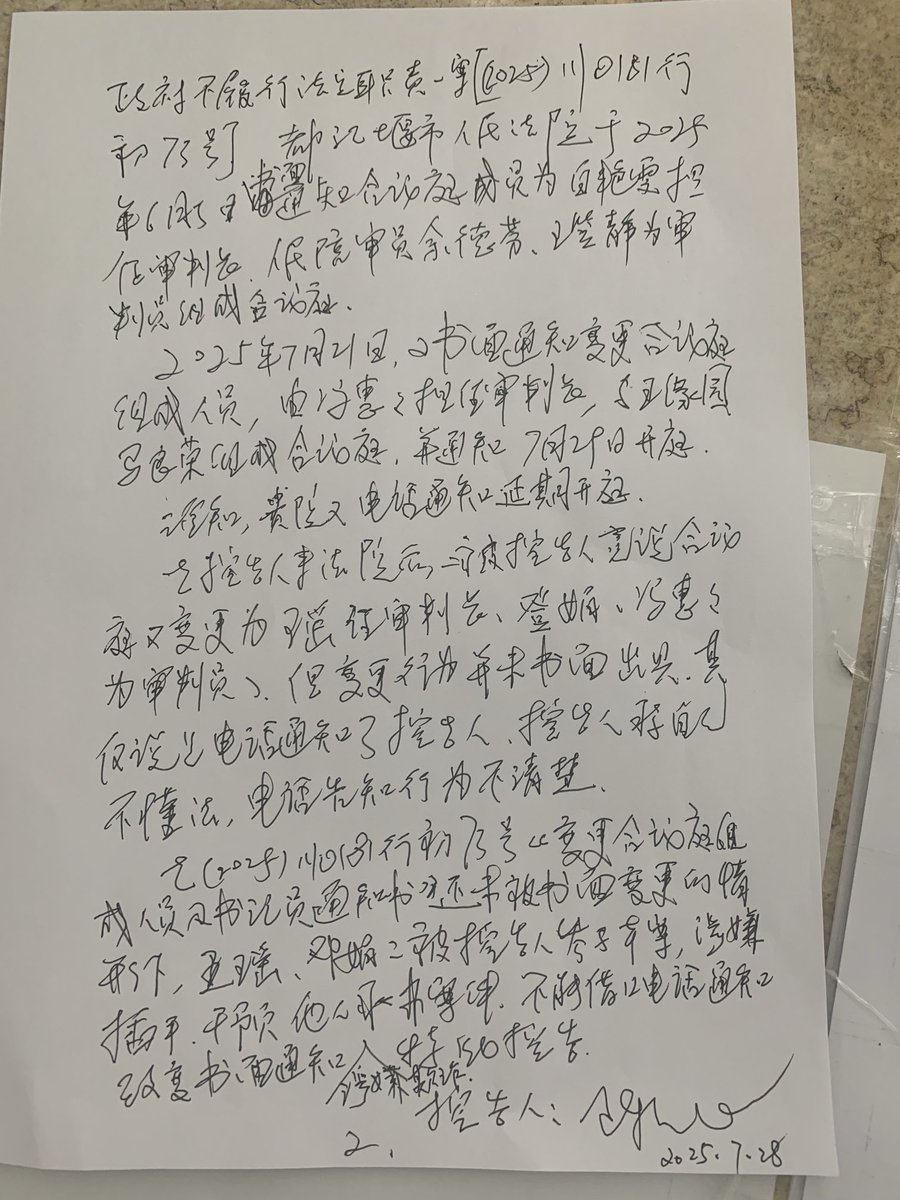 政府不履行法定职责一案[(2025)川0181行
初73号] 都江堰市人民法院于2025
年6月5日书面通知合议庭成员为自艳雯担
任审判长、人民陪审员余德芳、王莹静为审
判员组成合议庭.
2025年7月21日,又书面通知变更合议庭
组成人员,由冯惠々担任审判长,与王缘园
马良荣组成合议庭,并通知7月29日开庭.
谁知,贵院又电话通知延期开庭.
控告人来法院后,二被控告人竟说合议
庭又变更为王瑶任审判长、登娟、冯惠々
为审判员、但变更行为并未书面出具.其
仅说是电话通知了控告人、控告人称自己
不懂法,电话告知行为不清楚.
在(2025)川0181行初73号《变更合议庭组
成人员及书记员通知书》还未被书面变更的情
形下,王瑶、邓娟二被控告人 涉嫌
插手、干预他人 办案件.不能借口电话通知
改变书面通知 控告.
涉嫌
控告人:
2.
2025.7.28